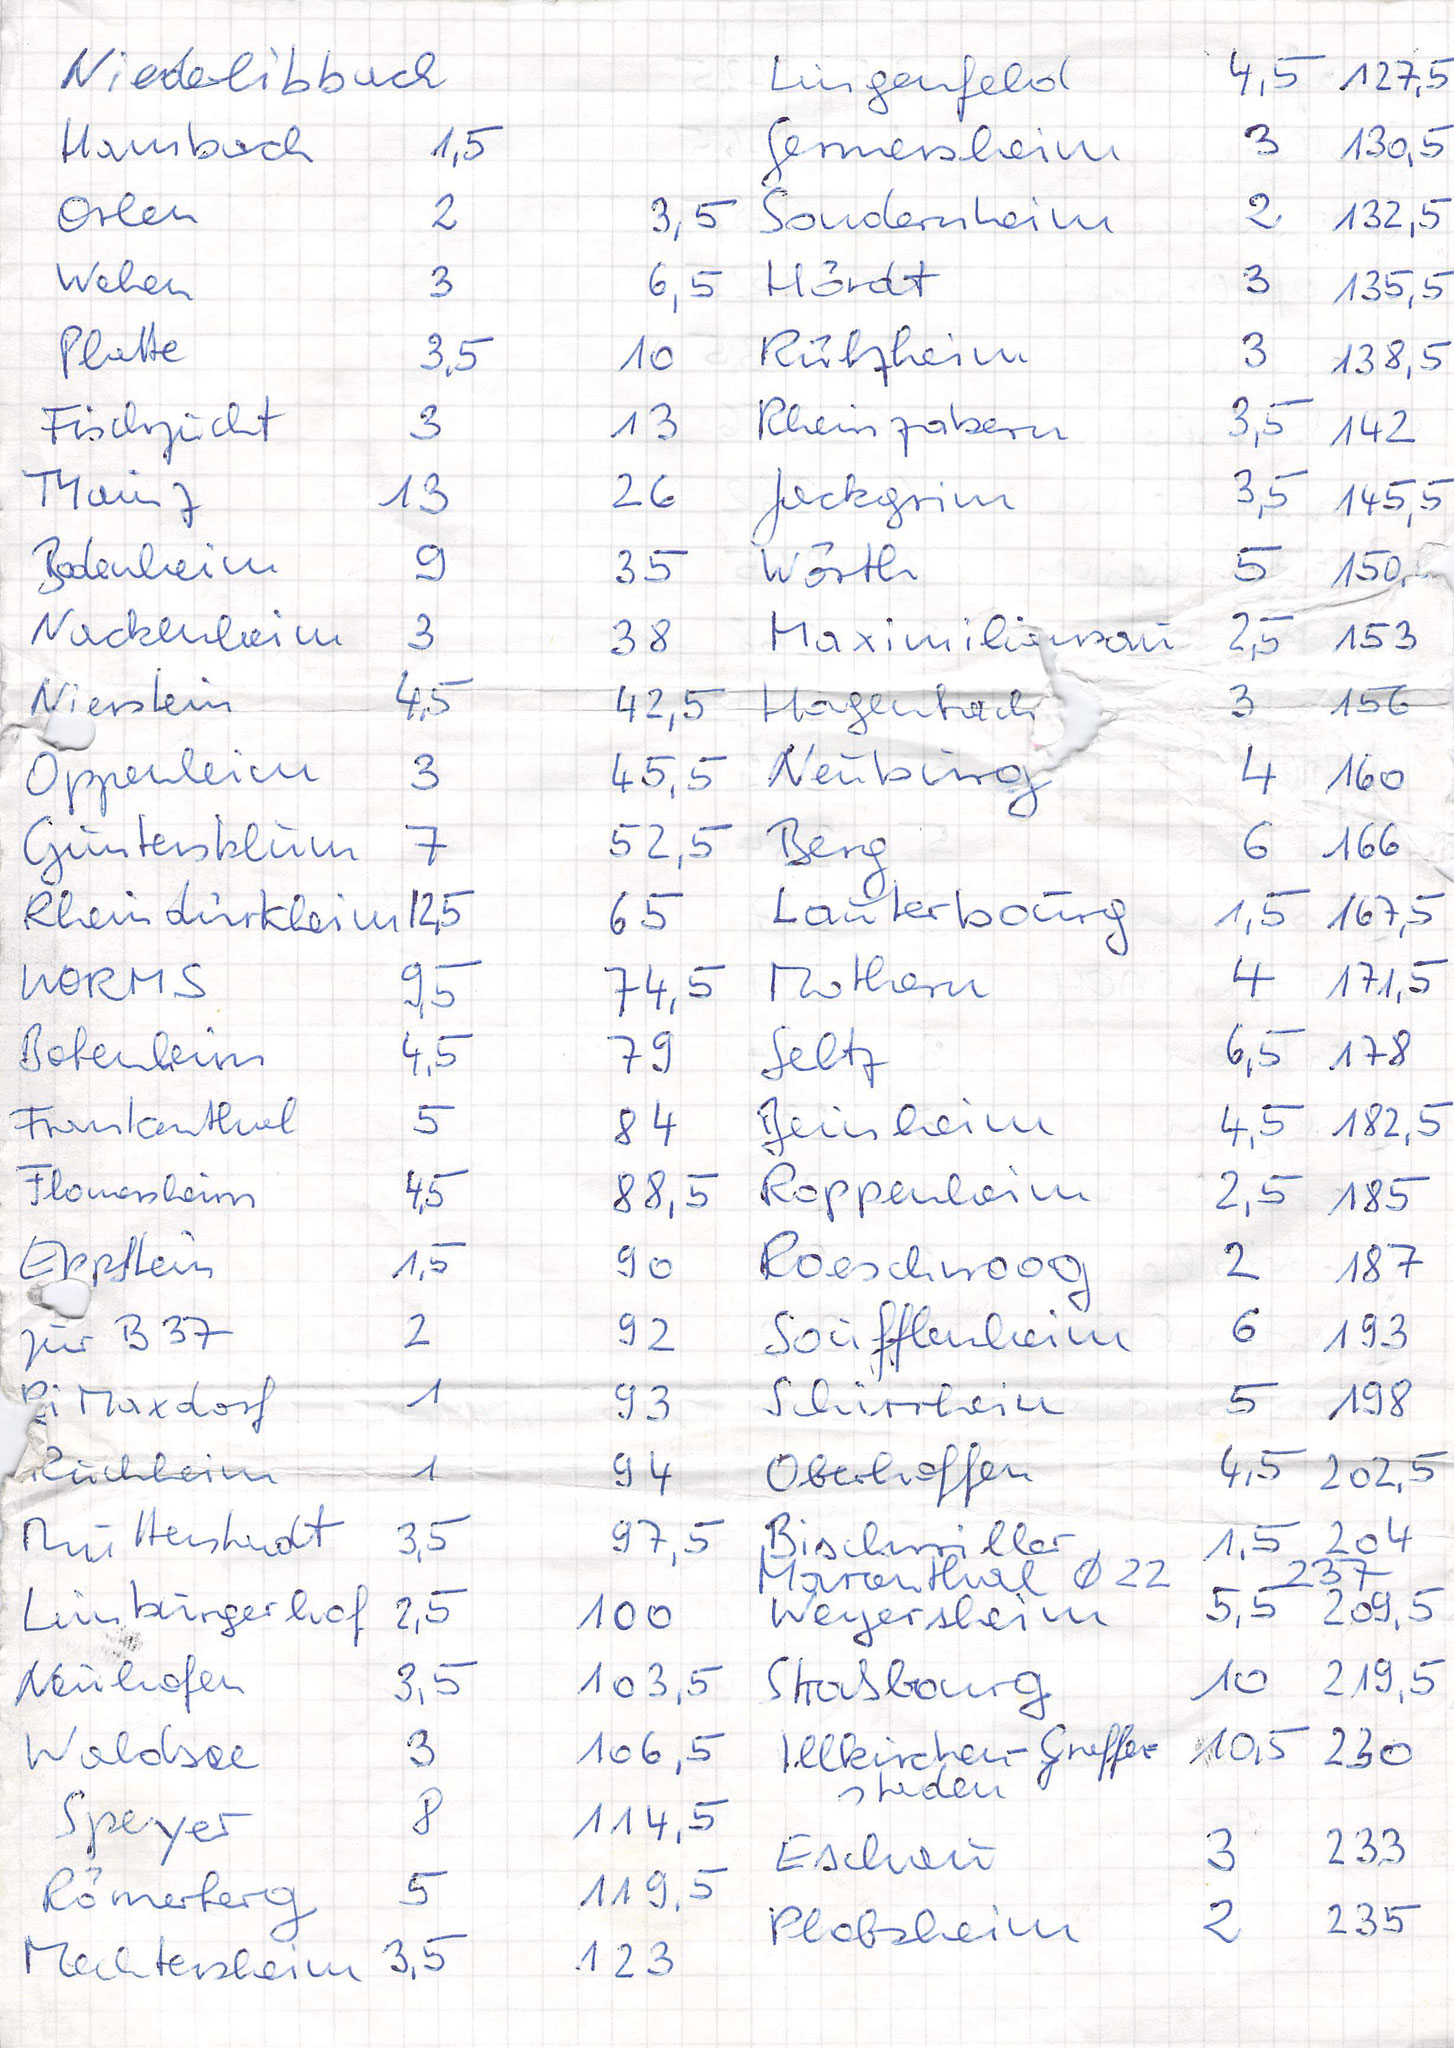 Niederlibbach
Hambach 1,5
Orlen 2 3,5
Wehen 3 6,5
Platte 3,5 10
Fischzücht 3 13
Mainz 13 26
Bodenheim 9 35
Nackenheim 3 38
Nierstein 4,5 42,5
Oppenheim 3 45,5
Guntersblum 7 52,5
Rheindürkheim 12,5 65
WORMS 9,5 74,5
Bobenheim 4,5 79
Frankenthal 5 84
Flomersheim 4,5 88,5
Eppstein 1,5 90
zur B 37 2 92
Ri Maxdorf 1 93
Ruchheim 1 94
Mutterstadt 3,5 97,5
Limburgerhof 2,5 100
Neuhofen 3,5 103,5
Waldsee 3 106,5
Speyer 8 114,5
Römerberg 5 119,5
Mechtersheim 3,5 123
Lingenfeld 4,5 127,5
Germersheim 3 130,5
Sondernheim 2 132,5
Hördt 3 135,5
Rülzheim 3 138,5
Rheinzabern 3,5 142
Jockgrim 3,5 145,5
Wörth 5 150,
Maximiliansau 2,5 153
Hagenbach 3 156
Neuburg 4 160
Berg 6 166
Lauterbourg 1,5 167,5
Mothern 4 171,5
Seltz 6,5 178
Beinheim 4,5 182,5
Roppenheim 2,5 185
Roeschwoog 2 187
Soufflenheim 6 193
Schirrhein 5 198
Oberhoffen 4,5 202,5
Bischwiller 1,5 204
Maranthal Ø 22 237
Weyersheim 5,5 209,5
Straßbourg 10 219,5
Illkirchen-Graffen 10,5 230
staden
Eschau 3 233
Plobsheim 2 235